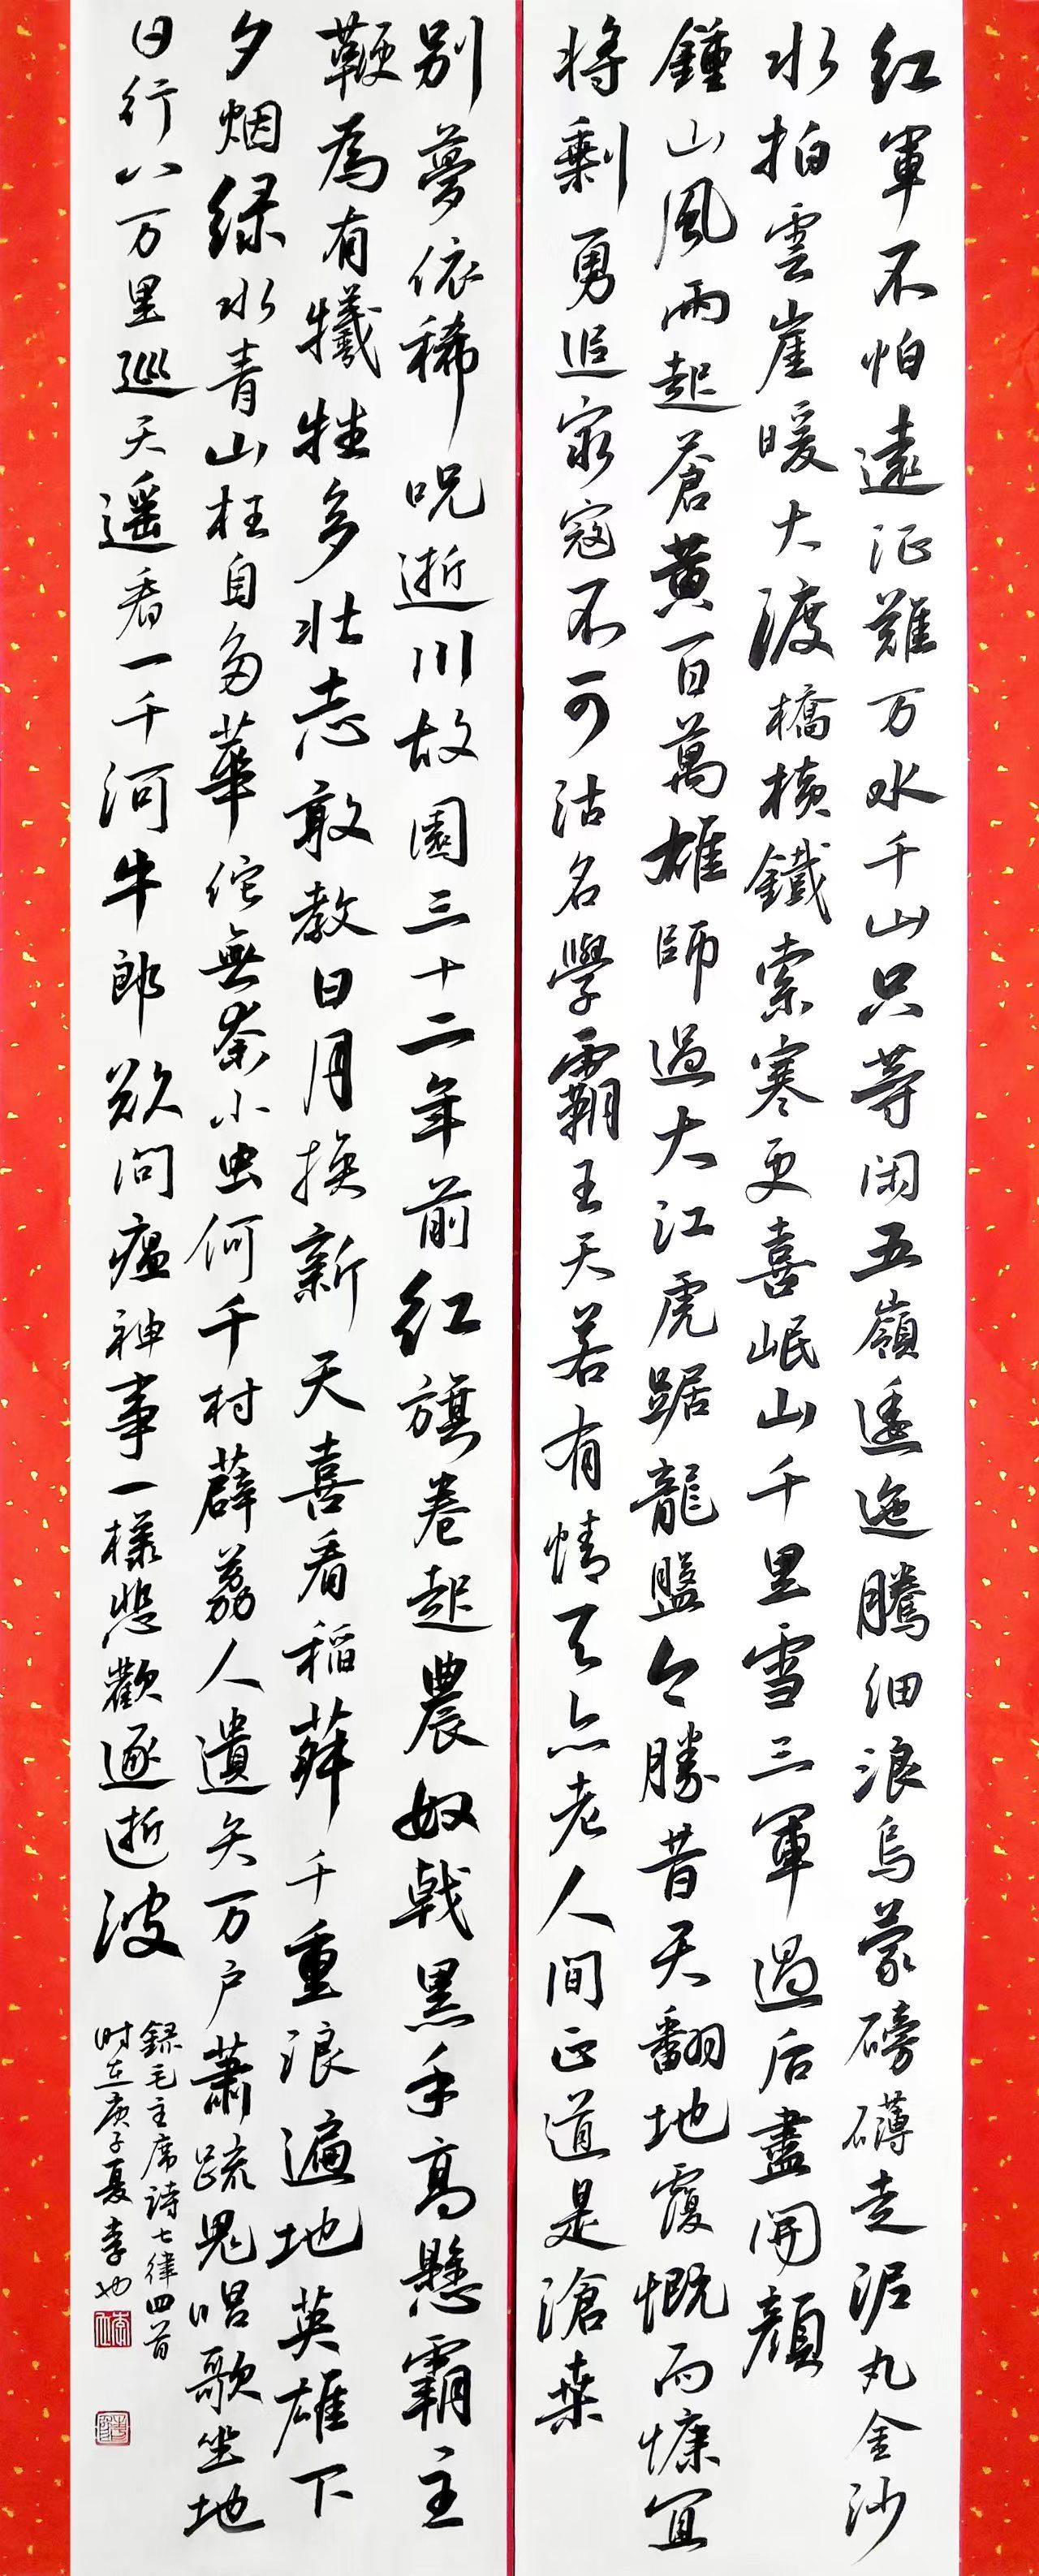 红軍不怕遠征難万水千山只等闲五嶺逶迤腾细浪烏蒙磅礴走泥丸金沙
水拍雲崖暖大渡橋横鐵索寒更喜岷山千里雪三軍過后盡開顔
鍾山風雨起蒼黄百萬雄師過大江虎踞龍盤今勝昔天翻地覆慨而慷宜
将剩勇追窮寇不可沽名學霸王天若有情天亦老人间正道是滄桑
别夢依稀呪逝川故園三十二年前红旗卷起農奴戟黑手高懸霸主
鞭為有犧牲多壮志敢教日月換新天喜看稲菽千重浪遍地英雄下
夕烟绿水青山枉自多華佗無奈小虫何千村薜荔人遺矢万户蕭疏鬼唱歌坐地
日行八万里巡天遥看一千河牛郎欲问瘟神事一樣悲歡逐逝波
録毛主席詩七律四首
时在庚子夏李也